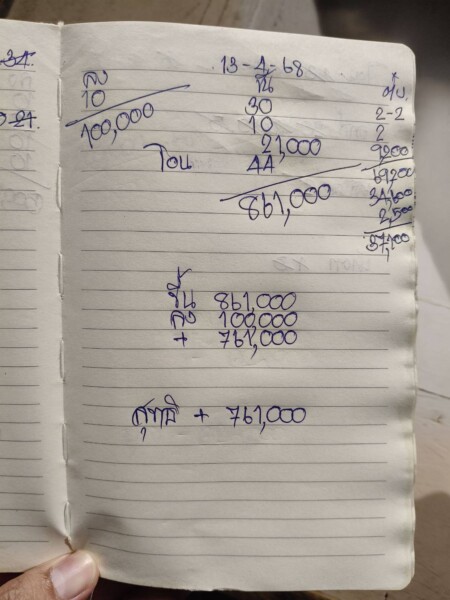 34.
0 27.
13-4-68
ลง
10
100,000
ขึ้น
30
10
21,000
โอน 44
861,000
2-2
2
9200
69200
34,600
2,500
57,100
ขึ้น 861,000
ลง 100,000
+ 761,000
สุทธิ + 761,000